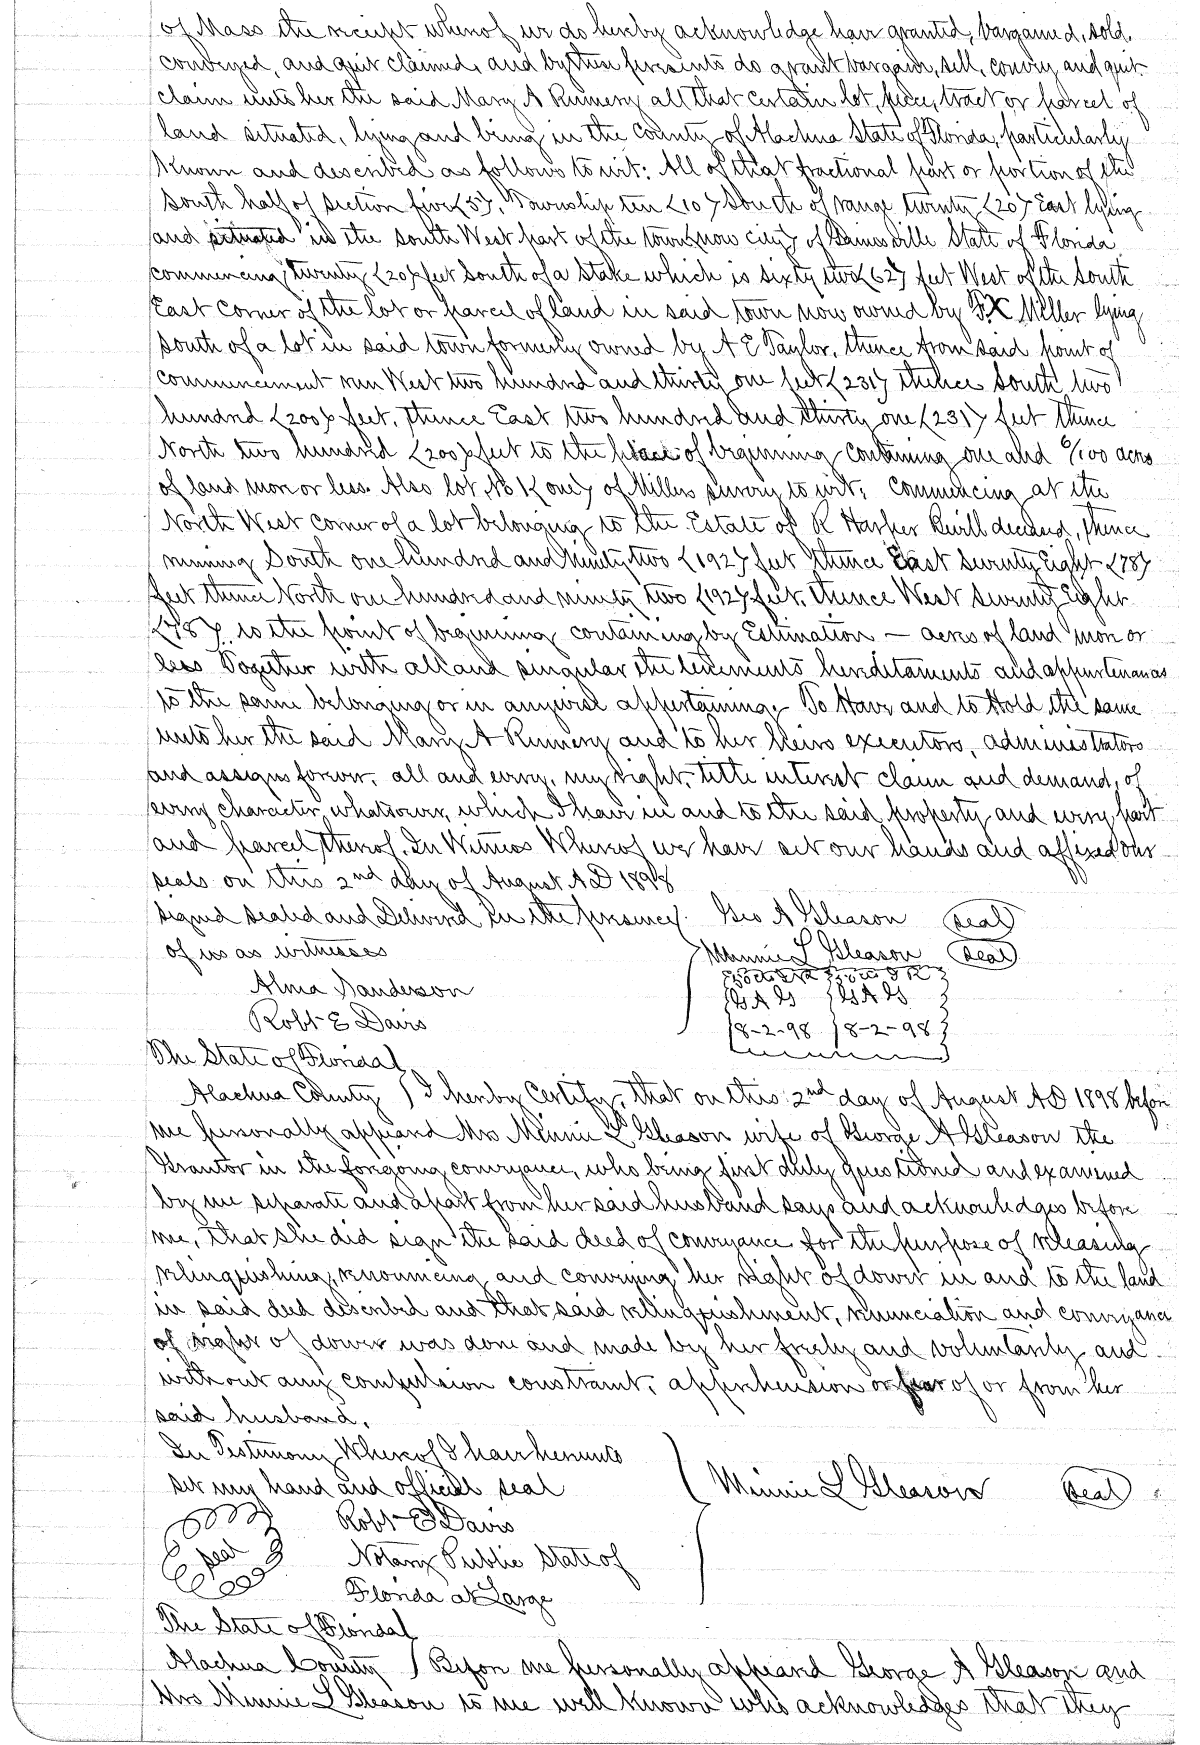 of Mass the receipt whereof we do hereby acknowledge have granted, bargained, sold,
conveyed, and quit claimed, and by these presents do grant bargain, sell, convey and quit
claim unto her the said Mary A Rumery all that certain lot, piece, tract or parcel of
land situated, lying and being in the County of Alachua State of Florida, particularly
Known and described as follows to wit: All of that fractional part or portion of the
South half of Section five <5>, Township ten <10> South of range twenty <20> East lying
and situated in the South West part of the town <now city> of Gainesville State of Florida
commencing twenty <20> feet South of a Stake which is sixty two <62> feet West of the South
East Corner of the lot or parcel of land in said town now owned by F.X Miller lying
South of a lot in said town formerly owned by A E Taylor, thence from said point of
commencement run West two hundred and thirty one feet <231> thence South two
hundred <200> feet, thence East two hundred and thirty one <231> feet thence
North two hundred <200> feet to the place of beginning containing one and 6/100 acres
of land more or less. Also lot No 1 <one> of Millers survey to wit: Commencing at the
North West Corner of a lot belonging to the Estate of R Harper deceased, thence
running South one hundred and Ninety two <192> feet thence East Seventy Eight <78>
feet thence North one hundred and ninety two <192> feet, thence West Seventy Eight
<78> to the point of beginning containing by Estimation — acres of land more or
less Together with all and singular the tenements hereditaments and appurtenances
to the same belonging or in anywise appertaining. To Have and to Hold the same
unto her the said Mary A Rumery and to her heirs executors, administrators
and assigns forever, all and every, my right, title interest claim and demand, of
every character, whatsoever, which I have in and to the said property and every part
and parcel thereof. In Witness Whereof we have set our hands and affixed our
seals on this 2nd day of August A.D 1898
Signed Sealed and Delivered in the presence Geo A Gleason seal
of us as witnesses Minnie L Gleason seal
Alma Sanderson G A G G A G
Robt E Davis 8-2-98 8-2-98
The State of Florida
Alachua County I hereby Certify, that on this 2nd day of August A.D 1898 before
me personally appeared Mrs Minnie L Gleason wife of George A Gleason the
Grantor in the foregoing conveyance, who being first duly questioned and examined
by me separate and apart from her said husband says and acknowledges before
me, that she did sign the said deed of conveyance for the purpose of releasing
relinquishing, renouncing and conveying her right of dower in and to the land
in said deed described and that said relinquishment, renunciation and conveyance
of right of dower was done and made by her freely and voluntarily and
without any compulsion constraint, apprehension or fear of or from her
said husband.
In Testimony Whereof I have hereunto
set my hand and official seal Minnie L Gleason seal
Robt E Davis
seal Notary Public State of
Florida at Large
The State of Florida
Alachua County Before me personally appeared George A Gleason and
Mrs Minnie L Gleason to me well known who acknowledges that they